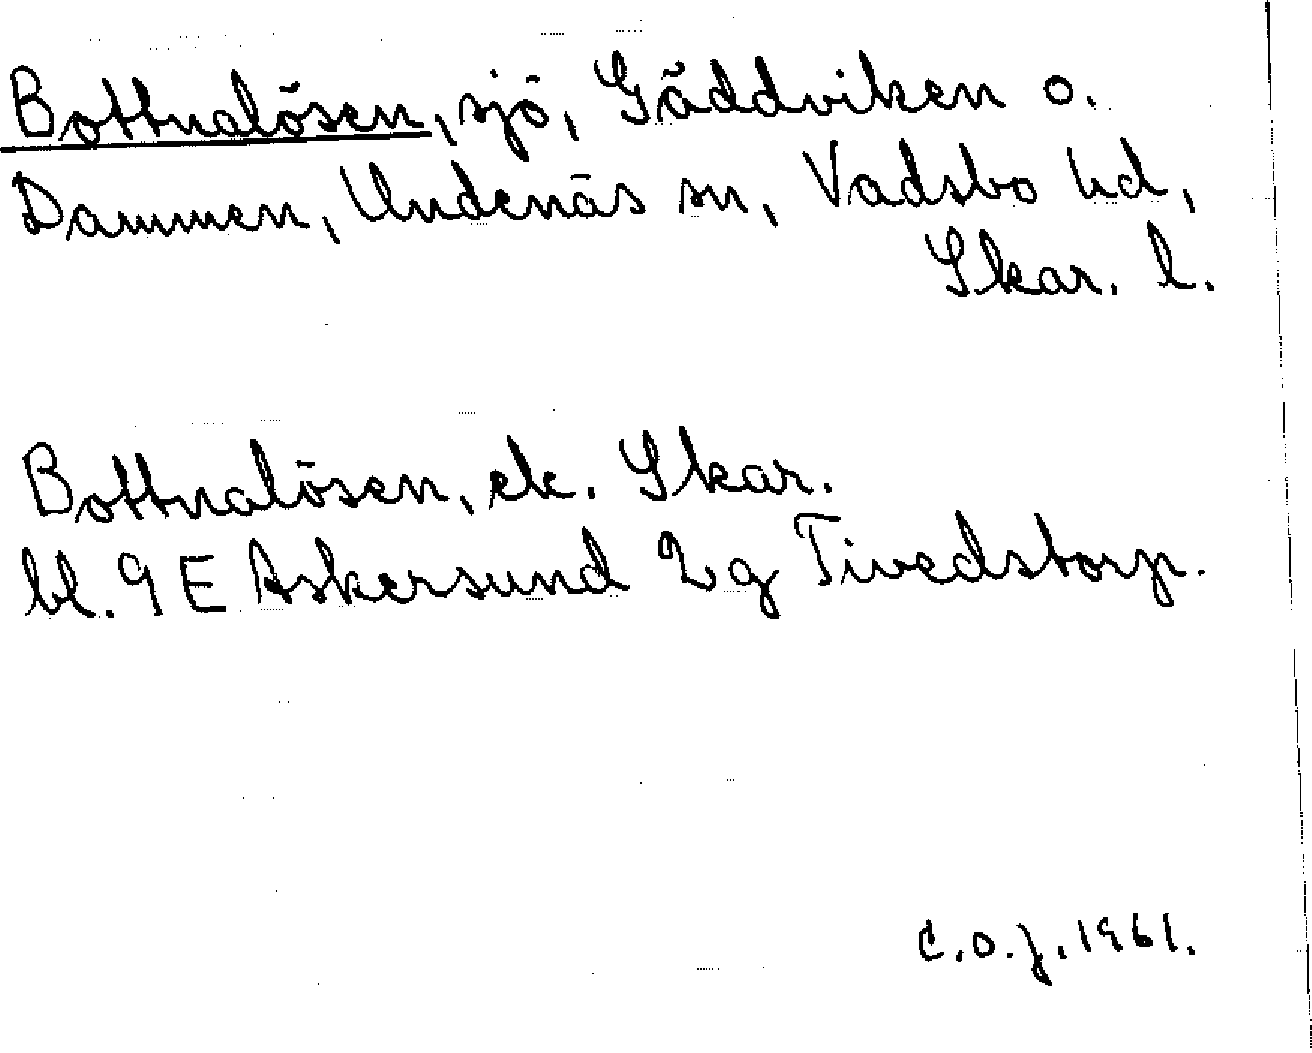 Bottnalösen, sjö, Gäddviken o.
Dammen, Undenäs sn, Vadsbo hd,
Skar. l.
Bottnalösen, ek. Skar.
bl. 9 E Askersund 2 g Tivedstorp.
C.O.J. 1961.